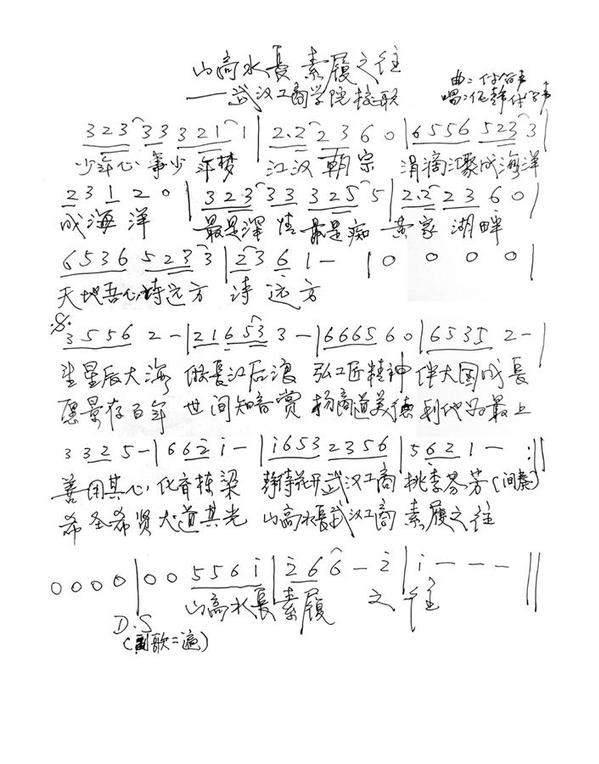 山高水長 素履之往
——武汉工商学院校歌
曲:
唱:
3 2 3 3 3 3 2 1 1 | 2· 2 2 3 6 0 | 6 5 5 6 5 2 3 3 |
少年心 事少 年梦 江汉 朝宗 涓滴汇聚成海洋
2 3 1 2 0 | 3 2 3 3 3 3 2 5 5 | 2· 2 2 3 6 0 |
成海 洋 最是深 情 最是痴 黄家 湖畔
6 5 3 6 5 2 3 3 | 2 3 6 1 — | 0 0 0 0 |
天地吾心诗远方 诗 远方
:S: 3 5 5 6 2 — | 2 1 6 5 3 3 — | 6 6 6 5 6 0 | 6 5 3 5 2 — |
星辰大海 做長江后浪 弘工匠精神 伴大国成長
愿景存百年 世间知音赏 扬商道美德 利他为最上
3 3 2 5 — | 6 6 2 i — | i 6 5 3 2 3 5 6 | 5 6 2 1 — :||
善用其心 化育栋梁 静待花开武汉工商 桃李芬芳(间奏)
希圣希贤 大道其光 山高水長武汉工商 素履之往
0 0 0 0 | 0 0 5 5 6 i | 2 6 6 — 2 | i — — — ||
山高水長素履 之 往
D.S
(副歌二遍)